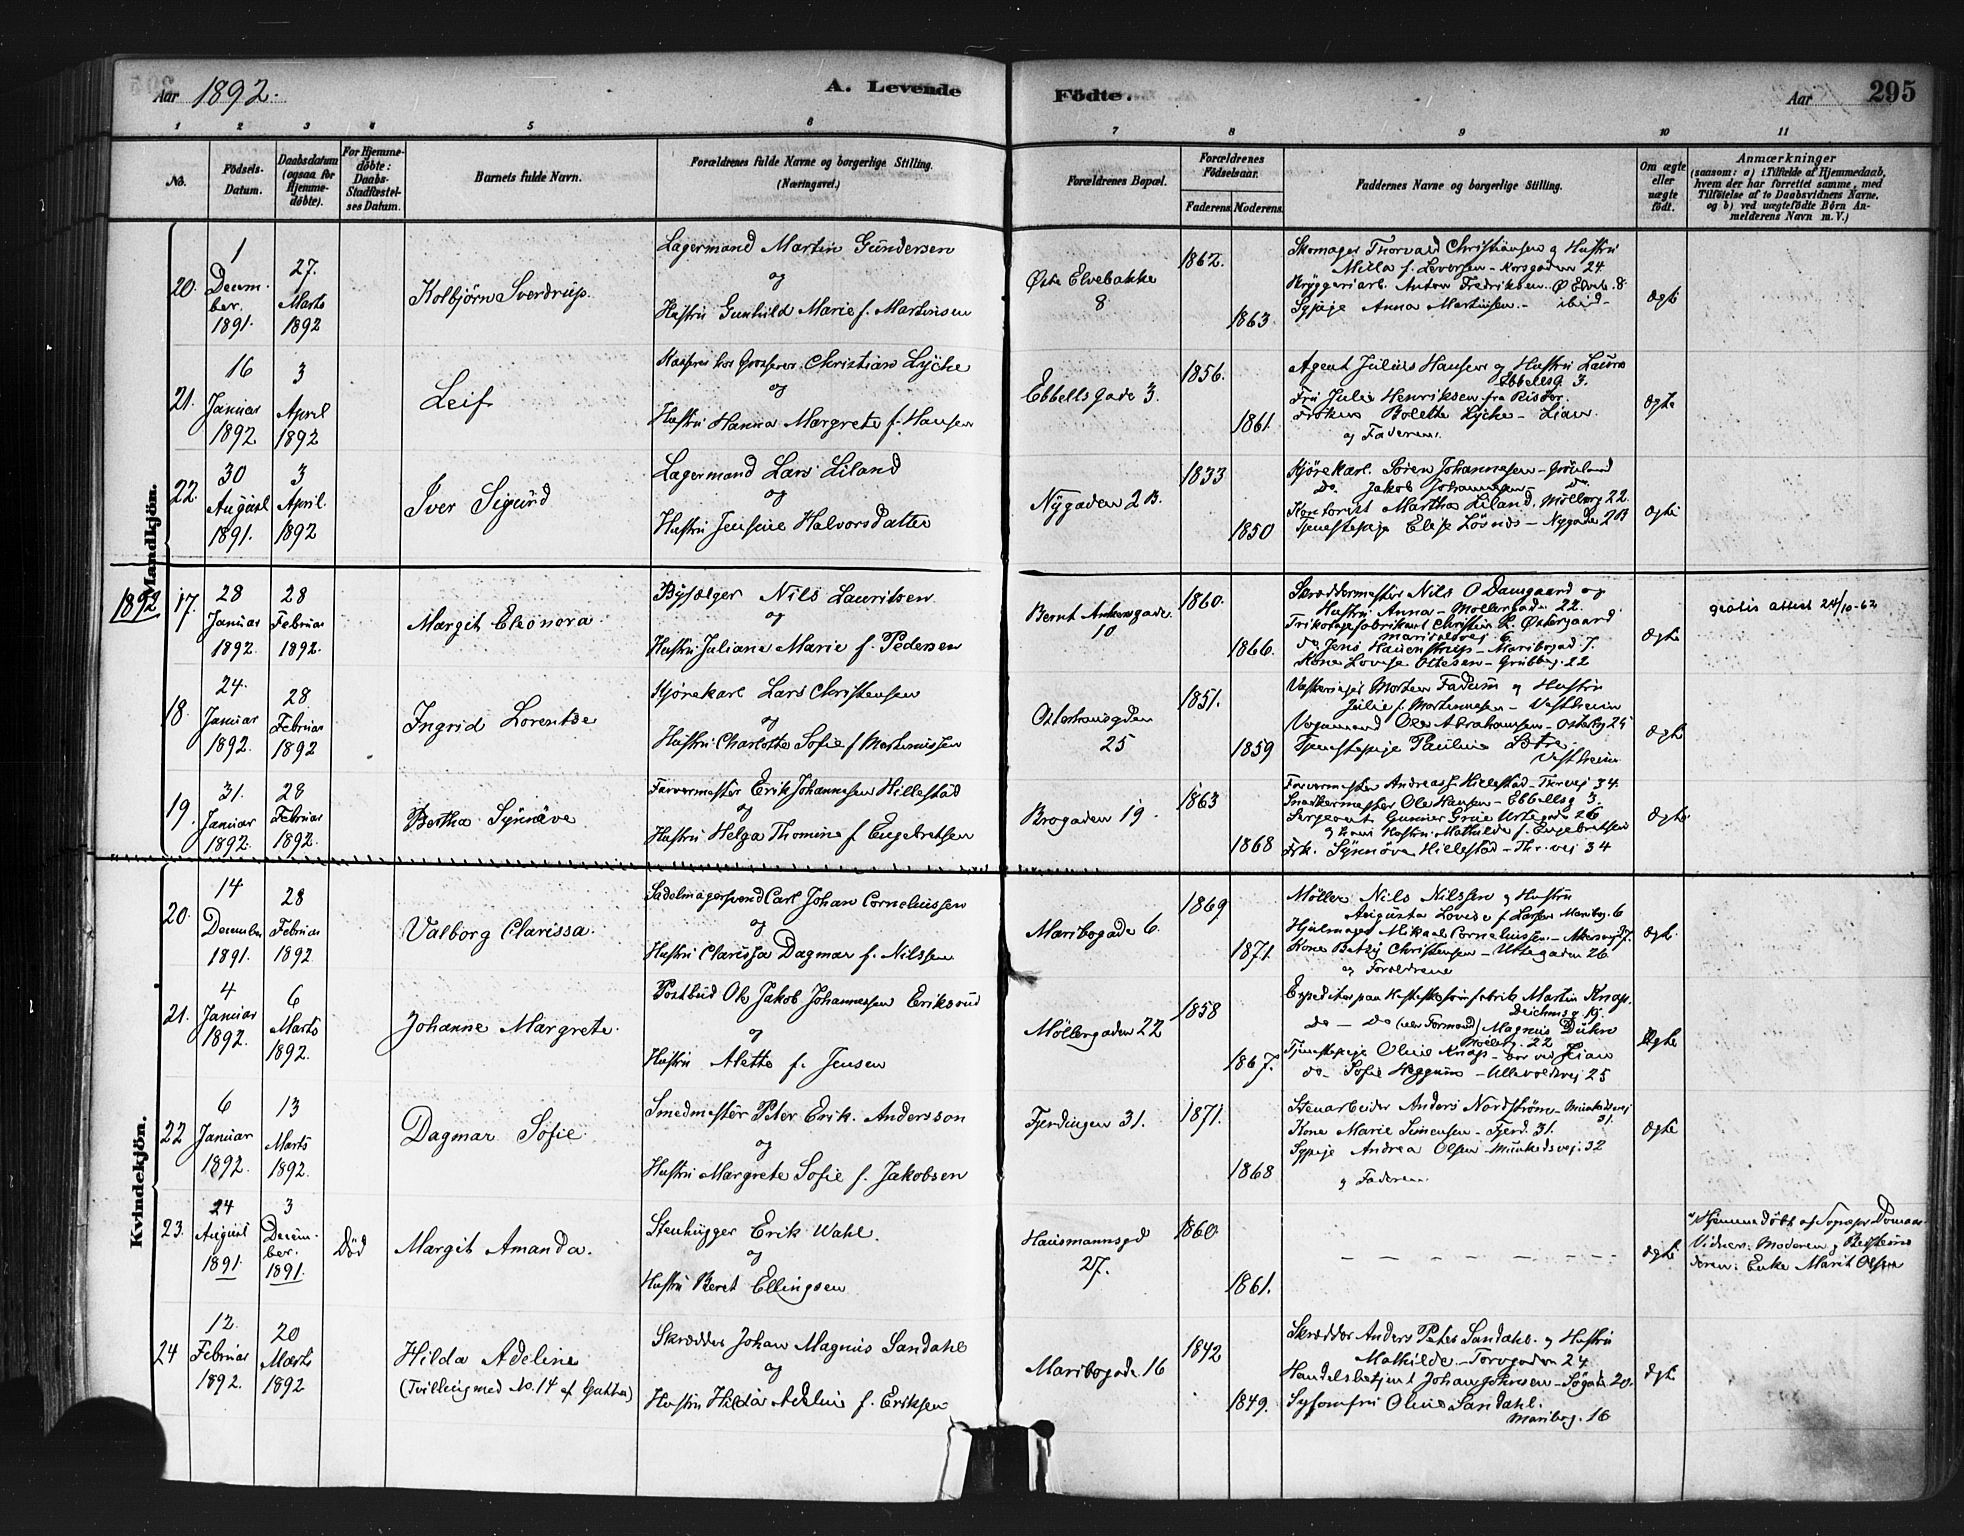 Aar 1892. A. Levende Födte. Aar 295
1 2 3 4 5 6 7 8 9 10 11
No.
Födsels-Datum.
Daabsdatum (ogsaa for Hjemmedöbte).
For Hjemmedöbte: Daabs-Stadfæstelses Datum.
Barnets fulde Navn.
Forældrenes fulde Navne og borgerlige Stilling.
(Næringsvei.)
Forældrenes Bopæl.
Forældrenes Födselsaar.
Faderens. Moderens.
Faddernes Navne og borgerlige Stilling.
Om ægte eller uægte födt.
Anmærkninger
(saasom: a) i Tilfælde af Hjemmedaab, hvem der har forrettet samme, med Tilföielse af to Daabsvidners Navne, og b) ved uægtefödte Börn Anmelderens Navn m. V.)
Mandkjön.
20.
1 December. 1891.
27. Marts 1892
Kolbjörn Sverdrup.
Lagermand Martin Gundersen
og
Hustru Gunhild Marie f. Martinsen
Østre Elvebakke
8
1862.
1863.
Skomager Thorvald Christiansen og Hustru
Milla f. Leversen - Korsgaden 24.
Bryggeriarb. Anton Fredriksen. Ø Elveb. 8.
Sypige Anna Martinsen. - ibid -
ægte
21.
16 Januar 1892
3 April 1892
Leif
Christian Lycke
og
Hustru Hanna Margrete f. Hansen
Ebbells gade 3.
1856.
1861.
Agent Julius Hansen og Hustru Laura
Ebbellsg. 3.
Fru Julie Henriksen fra Risör.
Fröken Bolette Lycke - Lian.
og Faderen.
ægte
22.
30 August 1891.
3 April. 1892
Iver Sigurd
Lagermand Lars Liland
og
Hustru Jensine Halvorsdatter
Nygaden 2 B.
1833
1850
Kjörekarl. Sören Johannesen - Grönland
Do. Jakob Johannesen - Do.
Kontorist Martha Liland. Möllerg 22.
Tjenestepige Elise - Nygade 2B
ægte
1892
17.
28 Januar 1892.
28 Februar 1892.
Margit Eleonora.
Nils Lauritsen
og
Hustru Juliane Marie f. Pedersen
Bernt Ankersgade.
10
1860.
1866.
Skræddermester Nils O Damgaard og
Hustru Anna - Möllergaden 22.
Trikotagefabrikant Christian L. Østergaard
Maridalsvej 6.
do Jens Hauenstrup - Maribogad 7.
Kone Lovise Ottesen - Grubbeg. 22
ægte
gratis attest 24/10-62
18.
24. Januar 1892.
28. Februar 1892
Ingrid Lorentze
Kjörekarl Lars Christensen
og
Hustru Charlotte Sofie f Martinussen
Osterhausgden
25
1851.
1859
Morten Fadum og Hustru
Julie f. Martinussen - Vestheim
Vognmand Ole Abrahamsen - Osterhg 25
Tjenestepige Pauline
Vestheim
ægte
19.
31. Januar 1892.
28 Februar 1892.
Bertha Synnöve
Farvermester Erik Johannesen Hillestad
og
Hustru Helga Thomine f. Engebretsen
Brogaden 19.
1863
1868
Farvermester Andreas J. Hillestad - Thrvej 34.
Snedkermester Ole Hansen - Ebbellsg 3.
Sergeant Gunner Grue Urtegad. 26
og Hustru Mathilde f. Engebretsen
Frk. Synnöve Hillestad - Thr.vej 34
ægte
Kvindekjön.
20.
14 December 1891.
28 Februar 1892.
Valborg Clarissa.
Sadelmagersvend Carl Johan Corneliussen
og
Hustru Clarissa Dagmar f. Nilssen
Maribogade 6.
1869
1871.
Möller Nils Nilssen og Hustru
Augusta Lovise f. Larsen Maribog. 6
Hjulmager Mikael Corneliussen. -
Kone Betzy Christensen - Urtegaden 26
og Forældrene
ægte
21.
4 Januar 1892.
6 Marts 1892.
Johanne Margrete.
Postbud Ole Jakob Johannessen Eriksrud
og
Hustru Alette f. Jensen
Möllergaden 22
1858
1867.
Martin Knap.
Deichmsg 19.
do - Do (Formand) Magnus
Möllerg. 22
Tjenestepige Oline Knap - Lian
do - Sofie Heggum - Ullevoldsvej 25
Ægte
22
6 Januar 1892.
13 Marts 1892.
Dagmar Sofie.
Smedmester Peter Erik. Andersson
og
Hustru Margrete Sofie f. Jakobsen
Fjerdingen 31.
1871.
1868
Stenarbeider Anders Nordström -
31.
Kone Marie Simensen - Fjerd. 31.
Sypige Andrea Olsen - Munkedsvej. 32
og Faderen.
ægte
23.
24 August 1891.
3 December. 1891.
Död
Margit Amanda.
Stenhugger Erik Wahl.
og
Hustru Beret Ellingsen
Hausmannsgd
27.
1860.
1861.
- - - - - - -
ægte
Hjemmedöbt af
Vidner: Moderen og
Enke Marit Olsen
24
12. Februar 1892.
20 Marts 1892
Hilda Adeline
(Tvilling med No. 14 af Gutter)
Skrædder Johan Magnus Sandahl
og
Hustru Hilda Adeline f. Eriksen
Maribogade. 16
1842
1849.
Skrædder Anders Peter Sandahl. og Hustru
Mathilde. - Torvgaden 24.
Handelsbetjent Johan Johnsen - Søgade. 20.
Syjomfru Oline Sandahl.
Maribog. 16
ægte